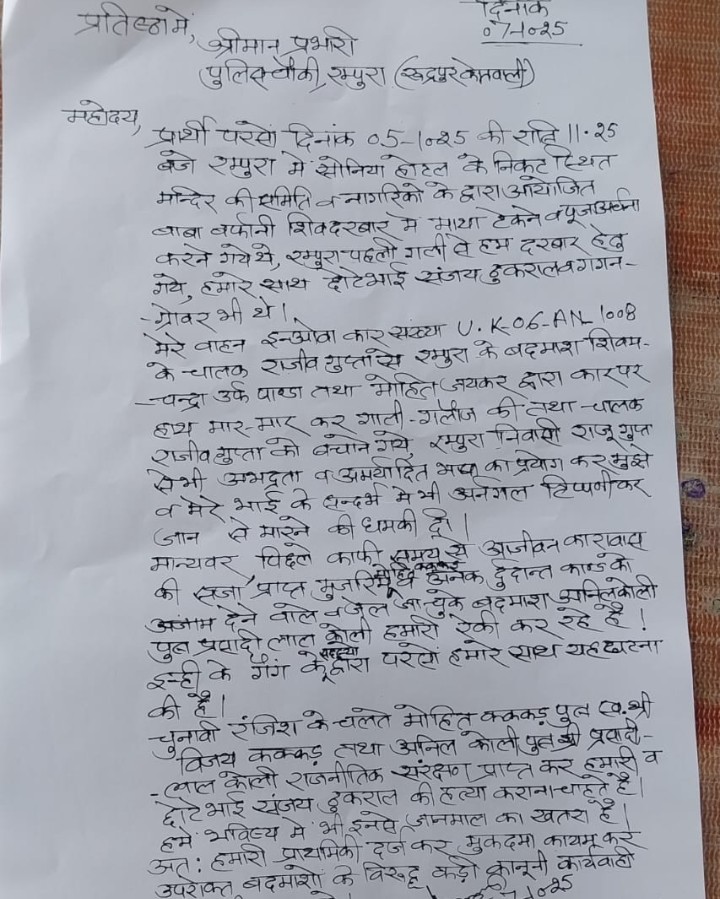 दिनांक
07-10-25
प्रतिष्ठा में,
श्रीमान प्रभारी
पुलिस चौकी, रम्पुरा (रूद्रपुर कोतवाली)
महोदय,
प्रार्थी परसो दिनांक 05-10-25 की रात्रि 11.25
बजे रम्पुरा मे सोनिया होटल के निकट स्थित
मन्दिर की समिति व नागरिको के द्वारा आयोजित
बाबा बर्फानी शिवदरबार मे माथा टेकने व पूजा अर्चना
करने गये थे, रम्पुरा पहली गली से हम दरबार हेतु
गये, हमारे साथ छोटे भाई संजय ठुकराल व गगन-
-ग्रोवर भी थे।
मेरे वाहन इनओवा कार संख्या U.K-06-AN-1008
के चालक राजीव गुप्ता से रम्पुरा के बदमाश शिवम-
-चन्द्रा उर्फ पाण्डा तथा मोहित जयकर द्वारा कार पर
हाथ मार-मार कर गाली-गलौज की तथा चालक
राजीव गुप्ता को बचाने गये रम्पुरा निवासी राजू गुप्ता
से भी अभद्रता व अमर्यादित भाषा का प्रयोग कर मुझे
व मेरे भाई के सन्दर्भ मे भी अनर्गल टिप्पणी कर
जान से मारने की धमकी दी।
मान्यवर पिछले काफी समय से आजीवन कारावास
की सजा प्राप्त मुजरिम मोहित कक्कड़ व अनेक दुर्दान्त काण्ड को
अंजाम देने वाले व जेल जा चुके बदमाश अनिल कोली
पुत्र प्रसादी लाल कोली हमारी रेकी कर रहे है।
इन्ही के गैंग के सदस्यो द्वारा परसो हमारे साथ यह घटना
की है।
चुनावी रंजिश के चलते मोहित कक्कड़ पुत्र स्व. श्री
विजय कक्कड़ तथा अनिल कोली पुत्र श्री प्रसादी-
-लाल कोली राजनीतिक संरक्षण प्राप्त कर हमारी व
छोटे भाई संजय ठुकराल की हत्या कराना चाहते है।
हमे भविष्य मे भी इनसे जानमाल का खतरा है।
अत: हमारी प्राथमिकी दर्ज कर मुकदमा कायम करे
उपरोक्त बदमाशो के विरूद्ध कड़ी कानूनी कार्यवाही